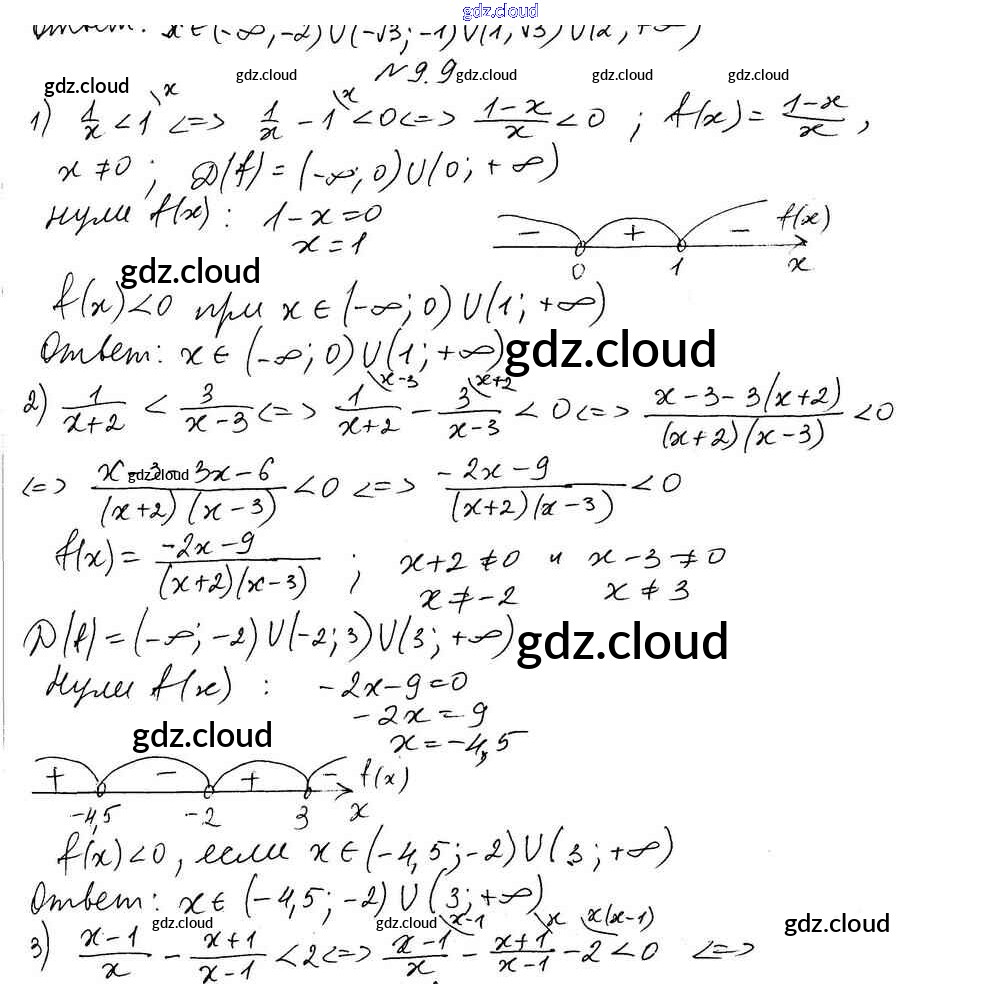 gdz.cloud
Ответ: x ∈ (-∞, -2) ∪ (-√3; -1) ∪ (1, √3) ∪ (2, +∞)
N 9.9 gdz.cloud gdz.cloud gdz.cloud
gdz.cloud
1) 1/x < 1 \x <=> 1/x - 1 \x < 0 <=> (1-x)/x < 0 ; f(x) = (1-x)/x ,
x ≠ 0 ; D(f) = (-∞; 0) ∪ (0; +∞)
нули f(x): 1-x=0
x=1
- + - f(x)
0 1 x
gdz.cloud
f(x)<0 при x ∈ (-∞; 0) ∪ (1; +∞)
Ответ: x ∈ (-∞; 0) ∪ (1; +∞) gdz.cloud
2) 1/(x+2) < 3/(x-3) <=> 1/(x+2) \x-3 - 3/(x-3) \x+2 < 0 <=> (x-3-3(x+2))/((x+2)(x-3)) < 0
<=> (x-3-3x-6)/((x+2)(x-3)) < 0 <=> (-2x-9)/((x+2)(x-3)) < 0
gdz.cloud
f(x) = (-2x-9)/((x+2)(x-3)) ; x+2 ≠ 0 и x-3 ≠ 0
x ≠ -2 x ≠ 3
D(f) = (-∞; -2) ∪ (-2; 3) ∪ (3; +∞) gdz.cloud
Нули f(x) : -2x-9=0
-2x=9
gdz.cloud x=-4,5
+ - + - f(x)
-4,5 -2 3 x
f(x)<0, если x ∈ (-4,5; -2) ∪ (3; +∞)
Ответ: x ∈ (-4,5; -2) ∪ (3; +∞)
gdz.cloud gdz.cloud gdz.cloud gdz.cloud
3) (x-1)/x - (x+1)/(x-1) < 2 <=> (x-1)/x \x-1 - (x+1)/(x-1) \x - 2 \x(x-1) < 0 <=>